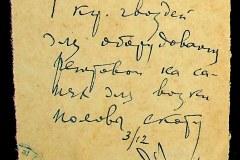 1 кг. гвоздей
для оборудования
на са-
нях для возки
половы скоту
3/12